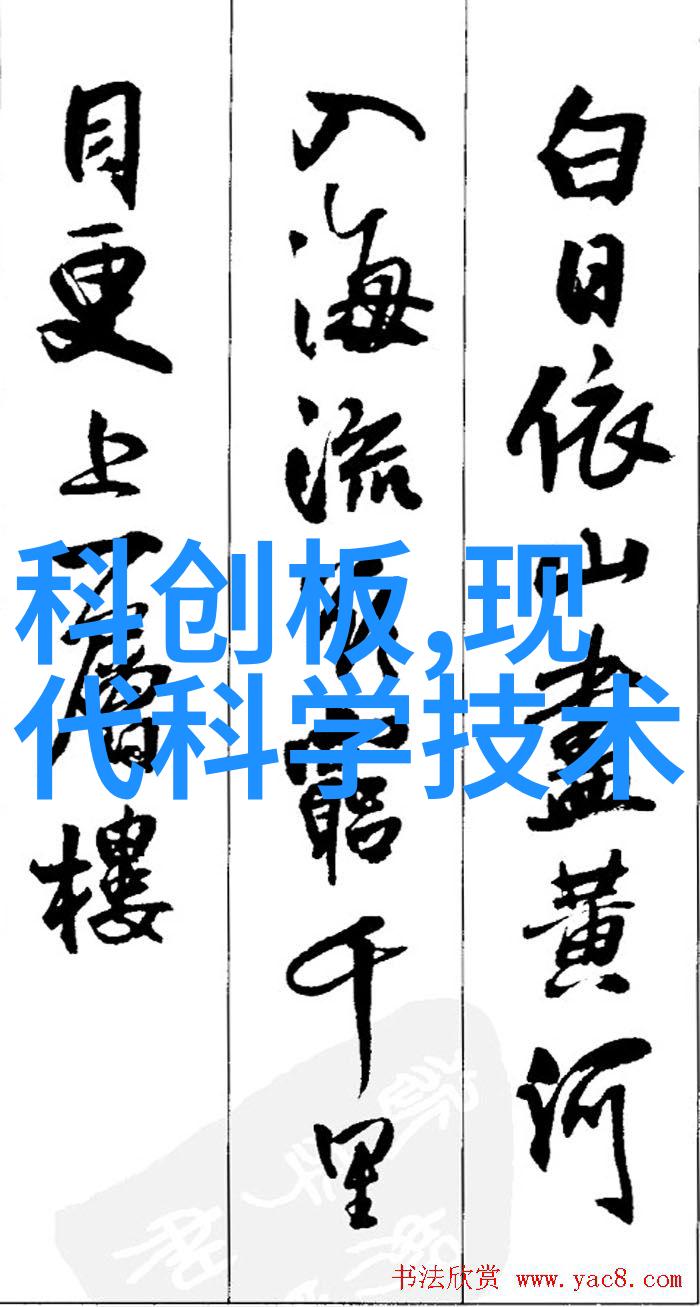 白日依山盡黄河
入海流欲窮千里
目更上一層樓
科创板,现
代科学技术
书法欣赏 www.yac8.com